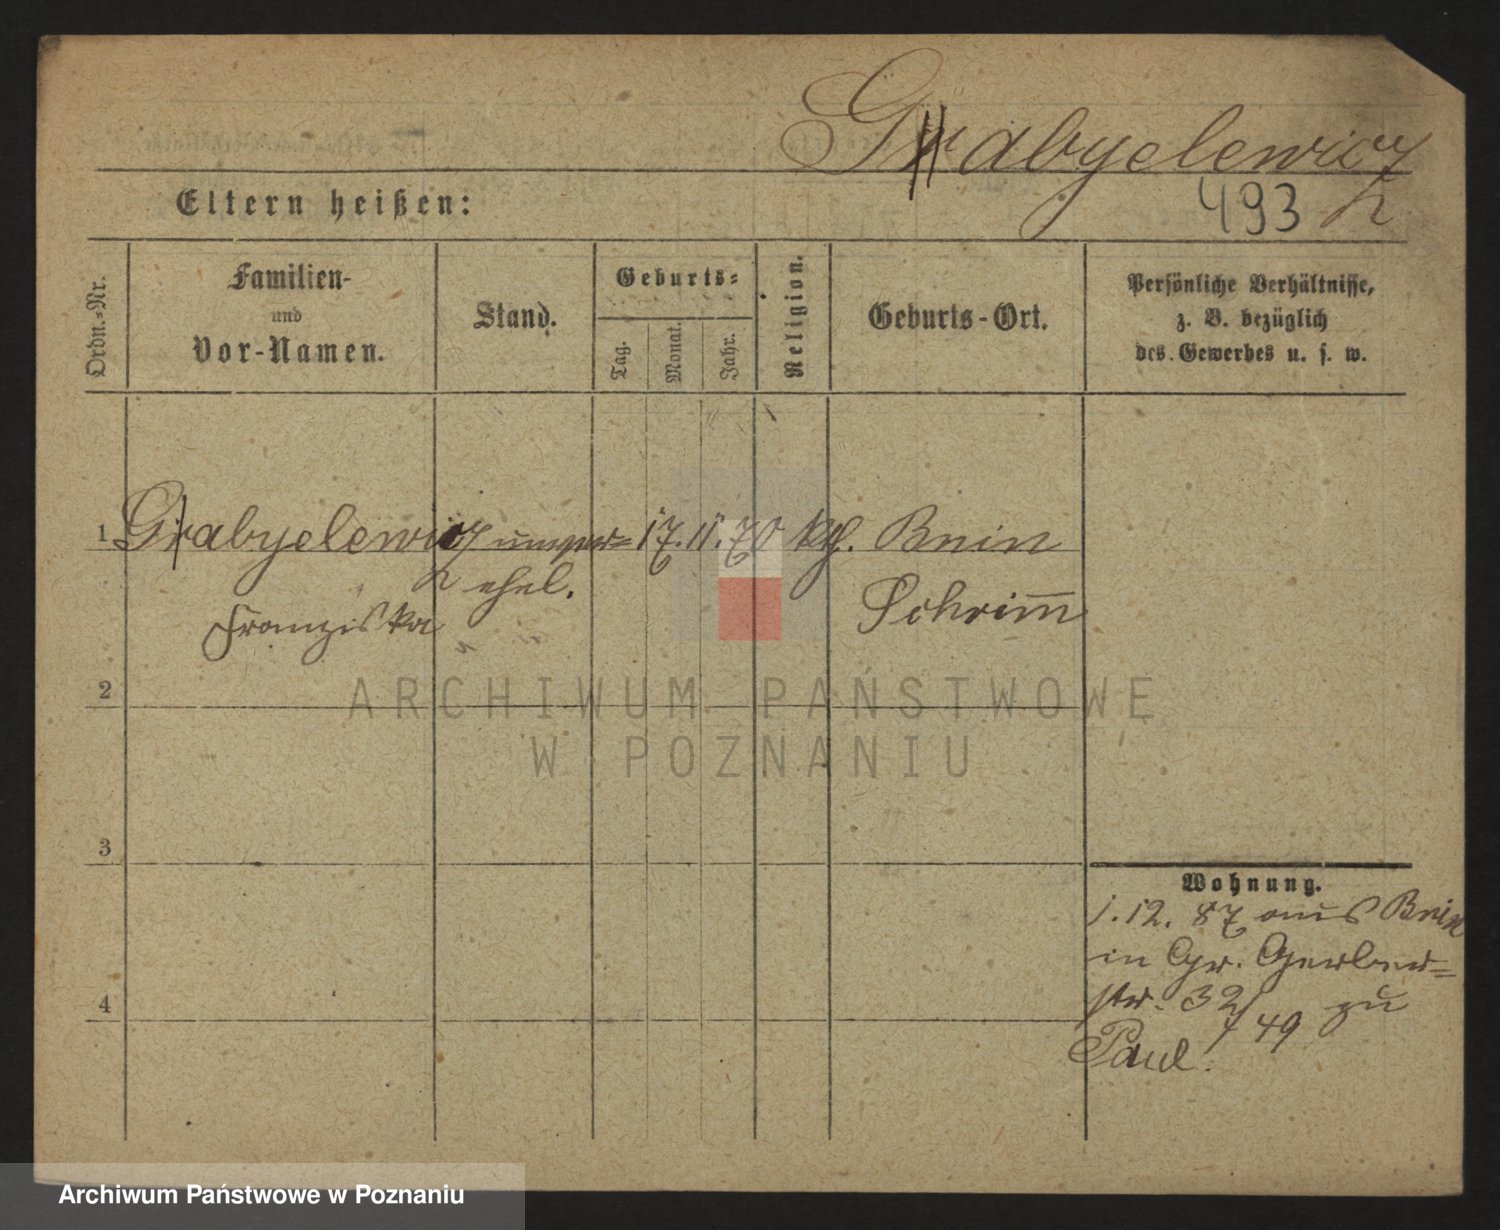 Grabyelewicz
493
Eltern heißen:
Ordn.-Nr.
Familien-
und
Vor-Namen.
Stand.
Geburts-
Tag.
Monat.
Jahr.
Religion.
Geburts-Ort.
Persönliche Verhältnisse,
z. B. bezüglich
des Gewerbes u. s. w.
1 Grabyelewicz unver= 17. 11. 70 kth. Bnin
ehel.
Franziska
Schrimm
2
ARCHIWUM PAŃSTWOWE
W POZNANIU
3
Wohnung.
1. 12. 87 aus Bnin
in Gr. Gerber=
str. 32/49 zu
Paul.
4
Archiwum Państwowe w Poznaniu